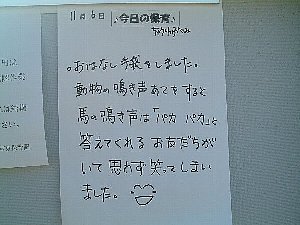 11月6日 今日の保育
おはなし会をしました。
動物の鳴き声あてをすると
馬の鳴き声は「パカ パカ」と
答えてくれるお友だちが
いて思わず笑ってしまい
ました。